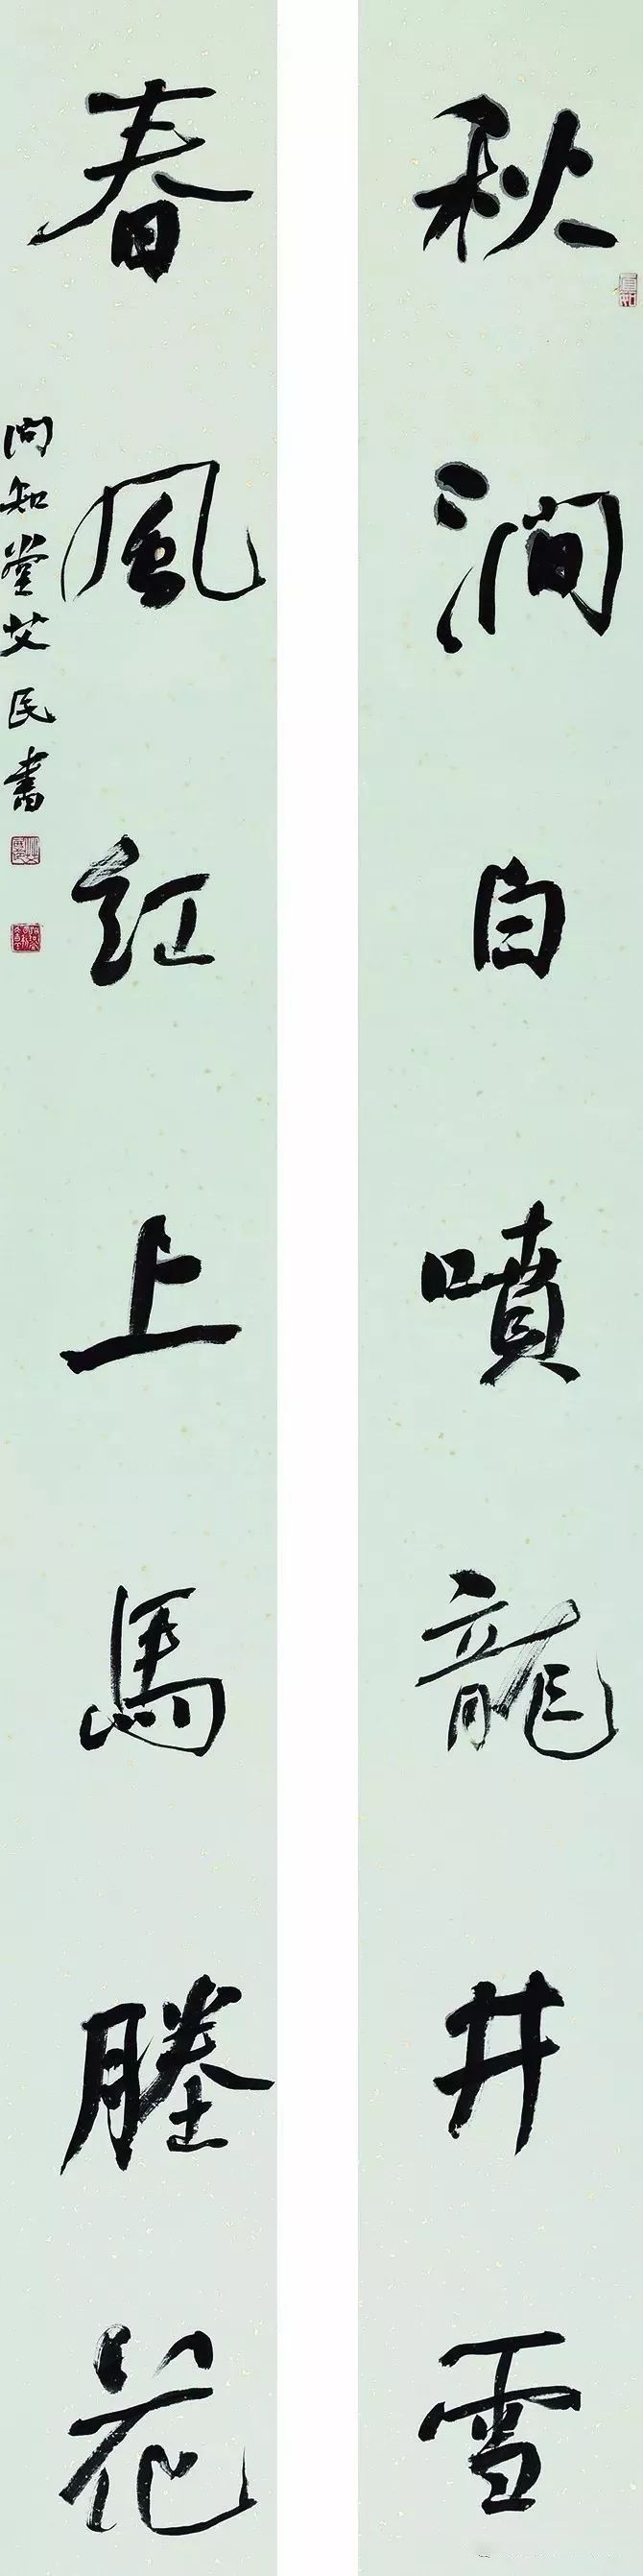 秋澗白噴龍井雪
春風紅上馬塍花
問知堂艾民書